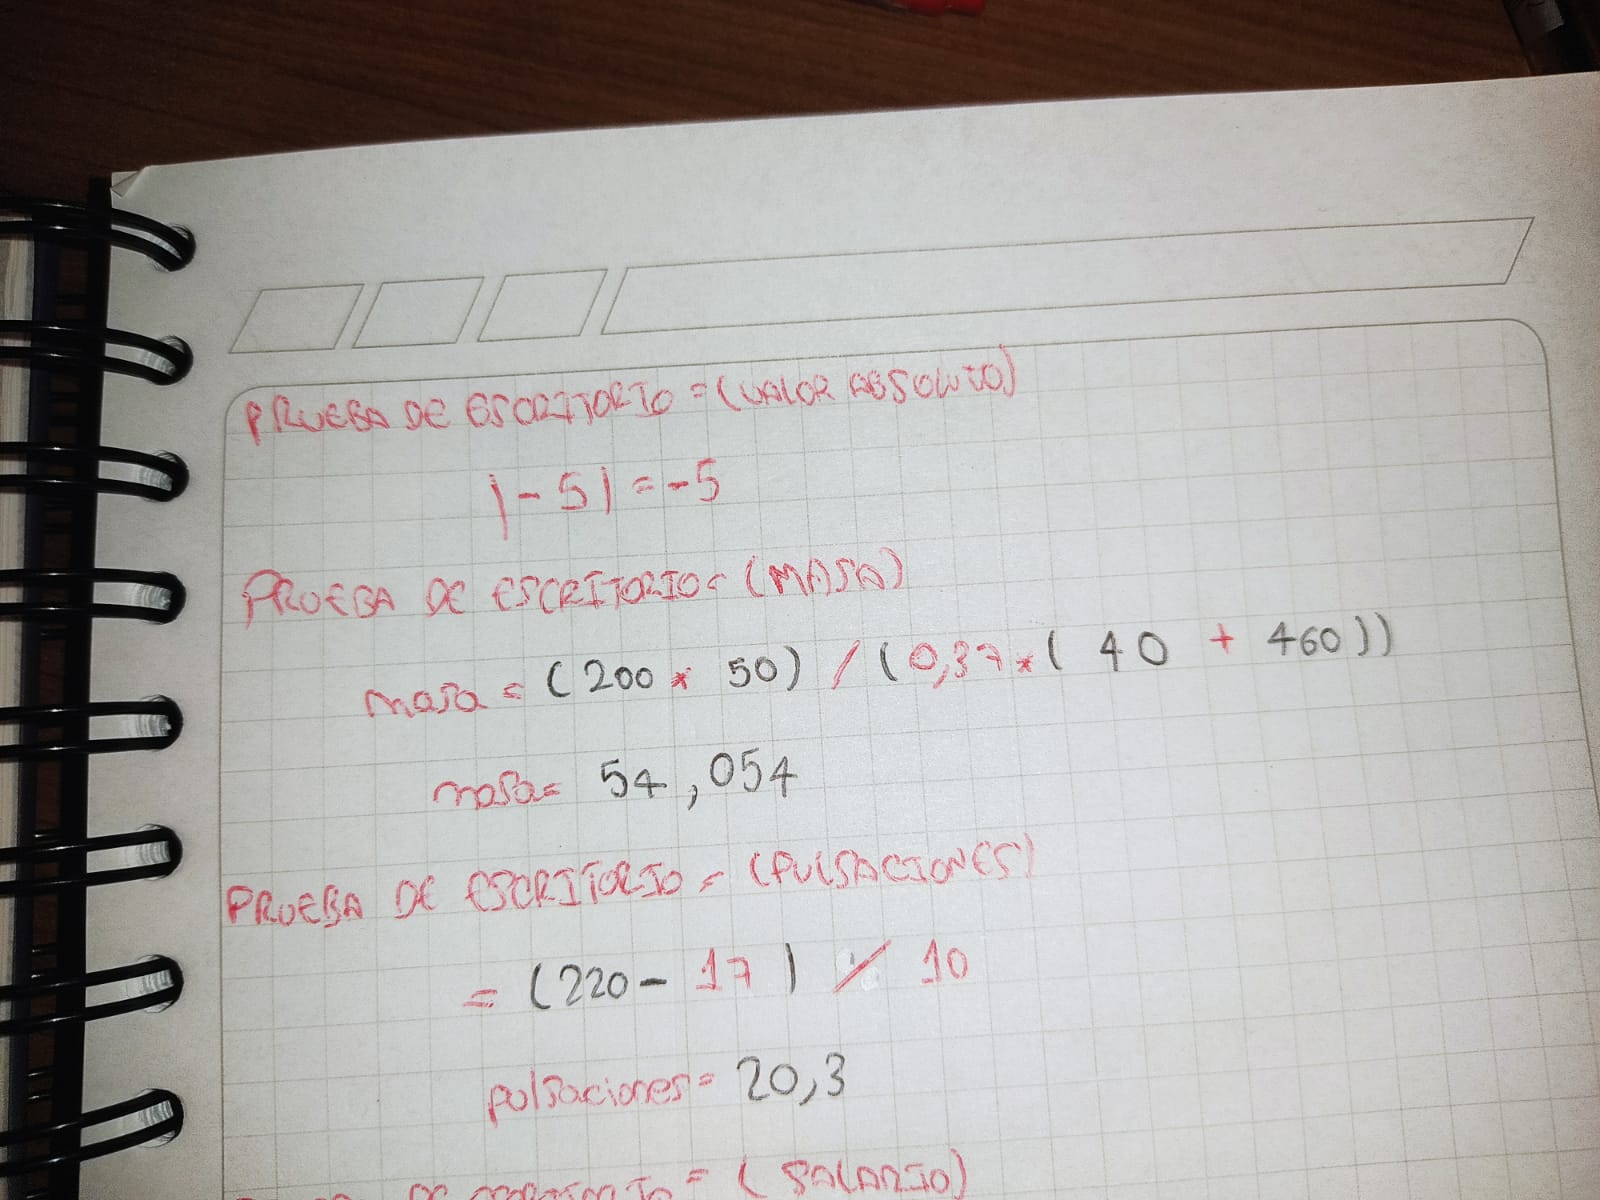 PRUEBA DE ESCRITORIO = (VALOR ABSOLUTO)
|-5| = -5
PRUEBA DE ESCRITORIO = (MASA)
masa = (200 * 50) / (0,37 * (40 + 460))
masa = 54,054
PRUEBA DE ESCRITORIO = (PULSACIONES)
= (220 - 17) / 10
pulsaciones = 20,3
PRUEBA DE ESCRITORIO = (SALARIO)